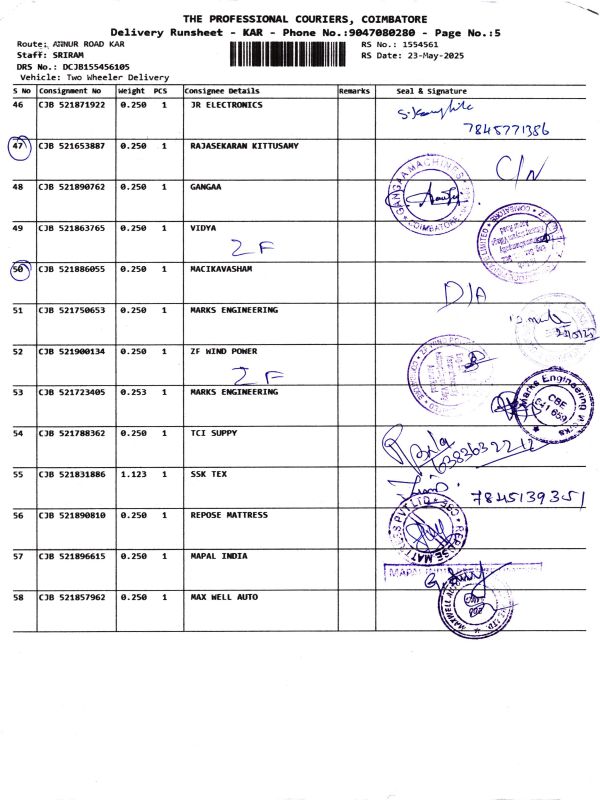 THE PROFESSIONAL COURIERS, COIMBATORE
Delivery Runsheet - KAR - Phone No.:9047080280 - Page No.:5
Route: ANNUR ROAD KAR RS No.: 1554561
Staff: SRIRAM RS Date: 23-May-2025
DRS No.: DCJB155456105
Vehicle: Two Wheeler Delivery
S No Consignment No Weight PCS Consignee Details Remarks Seal & Signature
46 CJB 521871922 0.250 1 JR ELECTRONICS
7845771386
47 CJB 521653887 0.250 1 RAJASEKARAN KITTUSAMY C/N
48 CJB 521890762 0.250 1 GANGAA GANGAA MACHINES COIMBATORE
49 CJB 521863765 0.250 1 VIDYA
ZF
50 CJB 521886055 0.250 1 MACIKAVASHAM D/A
51 CJB 521750653 0.250 1 MARKS ENGINEERING
52 CJB 521900134 0.250 1 ZF WIND POWER
ZF
53 CJB 521723405 0.253 1 MARKS ENGINEERING Marks Engineering Works CBE 641 659
54 CJB 521788362 0.250 1 TCI SUPPY
6383632212
55 CJB 521831886 1.123 1 SSK TEX 7845139351
56 CJB 521890810 0.250 1 REPOSE MATTRESS REPOSE MATTRESS PVT LTD CBE
57 CJB 521896615 0.250 1 MAPAL INDIA MAPAL
58 CJB 521857962 0.250 1 MAX WELL AUTO MAXWELL